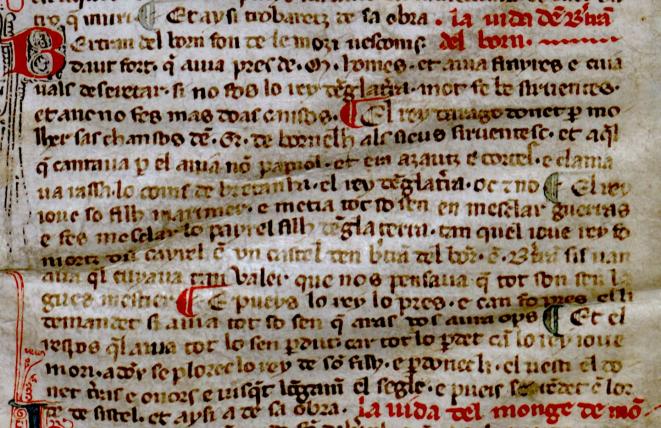 tro q muri ¶ Et aysi trobaretz de sa obra. la uida dē Btrā
Bertran del born fon de lemozi uescoms. del born.
dautafort. q auia pres de .M. homes. et auia frayres e cuia
uals deseretar. si no fos lo rey dēglatīra. mot fe be siruentes.
et anc no fes mas doas cansos. ¶ El rey darago donet p mo
lher sas chansos dē .Gr. de bornelh als sieus siruentesc. et aql
q cantaua p el auia nō papiol. et era azautz e cortes. e clama
ua rassa lo coms de bretanha. el rey dēglatīra. oc e no ¶ El rey
ioue so filh marinier. e metia tot so sen en mesclar guerras
e fes mesclar lo payre el filh dēglaterra. tan quel ioue rey fo
mortz dun cayrel q en un castel den btran del bor. E. Btrā sis uan
aua ql cuiaua tan ualer que nos pensaua q tot son sen la
gues mestier ¶ E pueys lo rey lo pres. e can fo pres el li
demandet si auia tot so sen q aras uos aura ops ¶ Et el
respos ql auia tot lo sen perdut. car tot lo perdet cā lo rey ioue
mori. adoncx se plores lo rey de sō filh. e perdonet li. el uesti el do
net tīras e onors e uisquet lōgamē el segle. e pueis se rēdet ē lor
de de sistel. et aysi a de sa obra. la uida del monge de mō